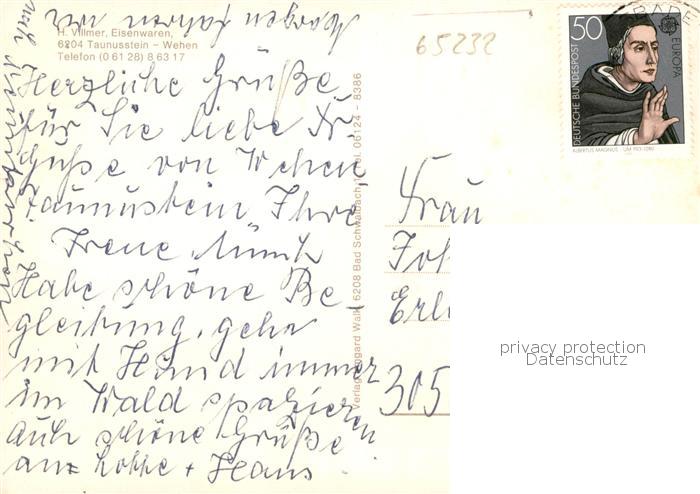 H. Villmer, Eisenwaren,
6204 Taunusstein - Wehen
Telefon (0 61 28) 8 63 17
Herzliche Grüße
für Sie liebe Fr.
von Wehen
Taunusstein Ihre
Irene
Habe schöne Be-
gleitung, gehe
mit Hund immer
im Wald spazieren
Auch schöne Grüße
an Lotte + Hans
Morgen fahren wir
nach
Verlag Walk, 6208 Bad Schwalbach 1, Tel. 06124 - 8386
65232
50
DEUTSCHE BUNDESPOST
EUROPA
ALBERTUS MAGNUS · UM 1193-1280
Frau
Erl
305
privacy protection
Datenschutz